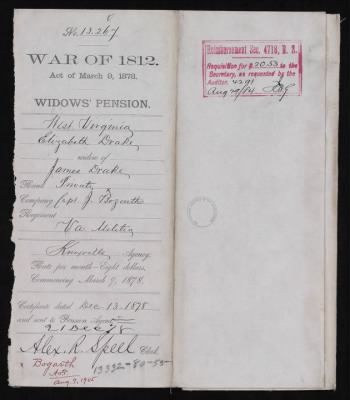 No. 13.267
WAR OF 1812.
Act of March 9, 1878.
WIDOWS' PENSION.
West Virginia
Elizabeth Drake,
widow of
James Drake
Rank Private
Company Capt. J. Bogarth
Regiment
Va Militia
Knoxville Agency.
Rate per month—Eight dollars,
Commencing March 9, 1878.
Certificate dated Dec 13. 1878
and sent to Pension Agent
21 Dec 78
Alex. R. Speel Clerk.
Bogarth
Aug. 9, 1905
13332-80-55
Reimbursement Sec. 4718, R. S.
Requisition for $20.53 to the
Secretary, as requested by the
Auditor. 4291